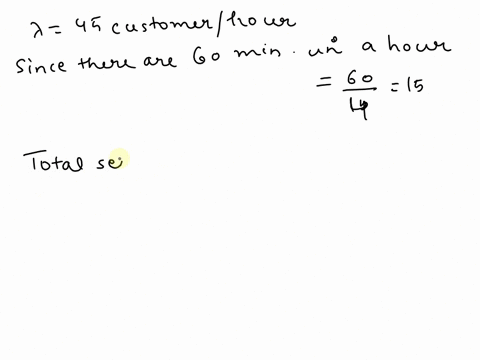 λ = 45 customer/hour
Since there are 60 min. in a hour
= 60/4 = 15
Total se